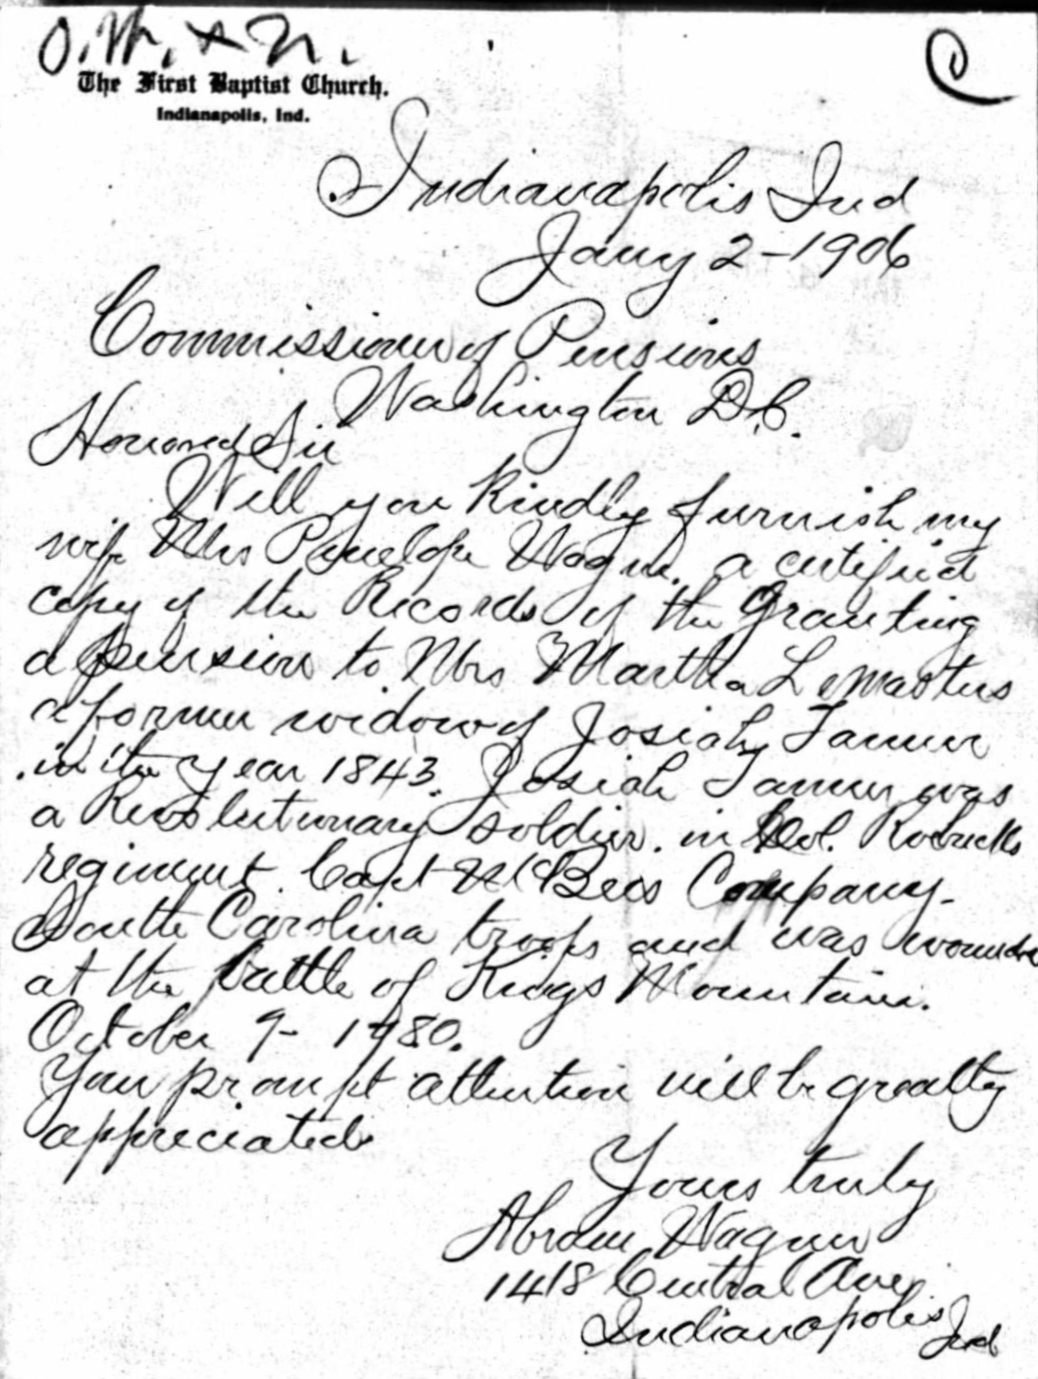 O. W. & N.
C
The First Baptist Church.
Indianapolis, Ind.
Indianapolis Ind
Jany 2-1906
Commissioner of Pensions
Washington D.C.
Honored Sir
Will you kindly furnish my
wife Mrs Penelope Wagner. a certified
copy of the Records of the Granting
a pension to Mrs Martha Lemasters
a former widow of Josiah Tanner
in the year 1843. Josiah Tanner was
a Revolutionary soldier. in Col. Robucks
regiment. Capt McBees Company-
South Carolina troops and was wounded
at the battle of Kings Mountain.
October 9- 1780.
Your prompt attention will be greatly
appreciated
Yours truly
Abram Wagner
1418 Central Ave.
Indianapolis Ind